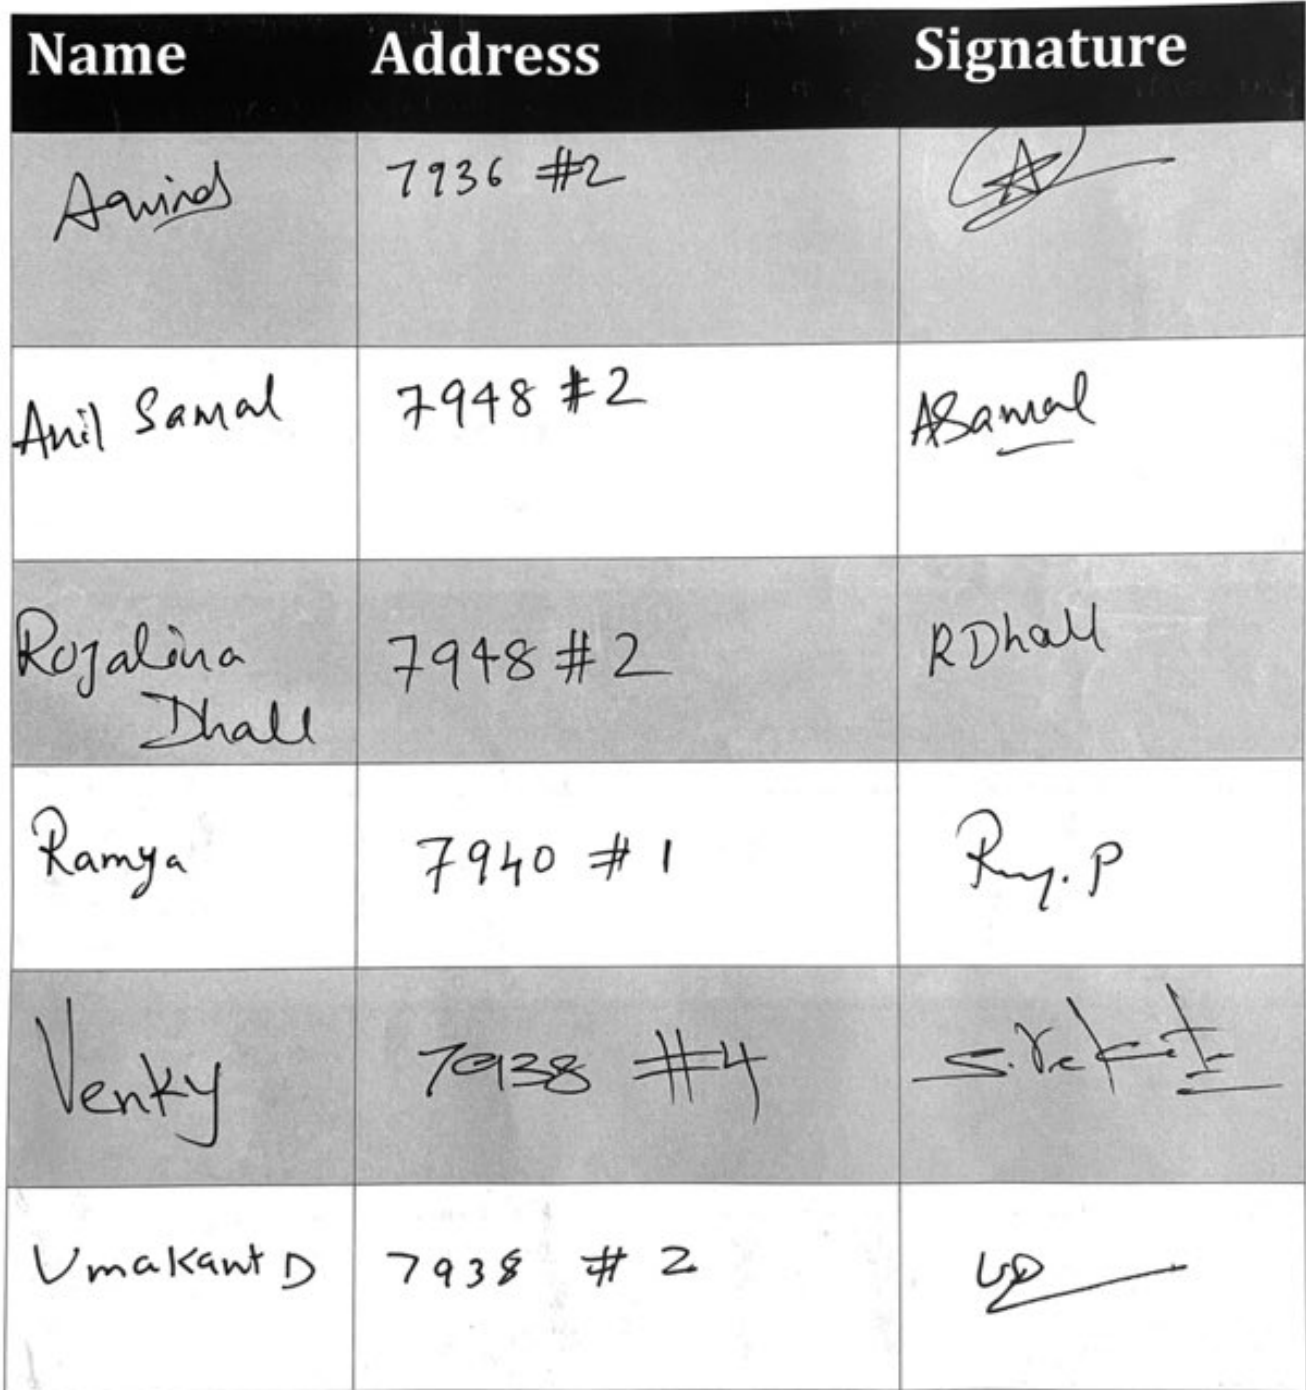 Name Address Signature
7936 #2
Anil Samal 7948 #2 ASamal
Rojalina
Dhall 7948 #2 RDhall
Ramya 7940 #1 Ramy. P
Venky 7938 #4
Umakant D 7938 #2 UD